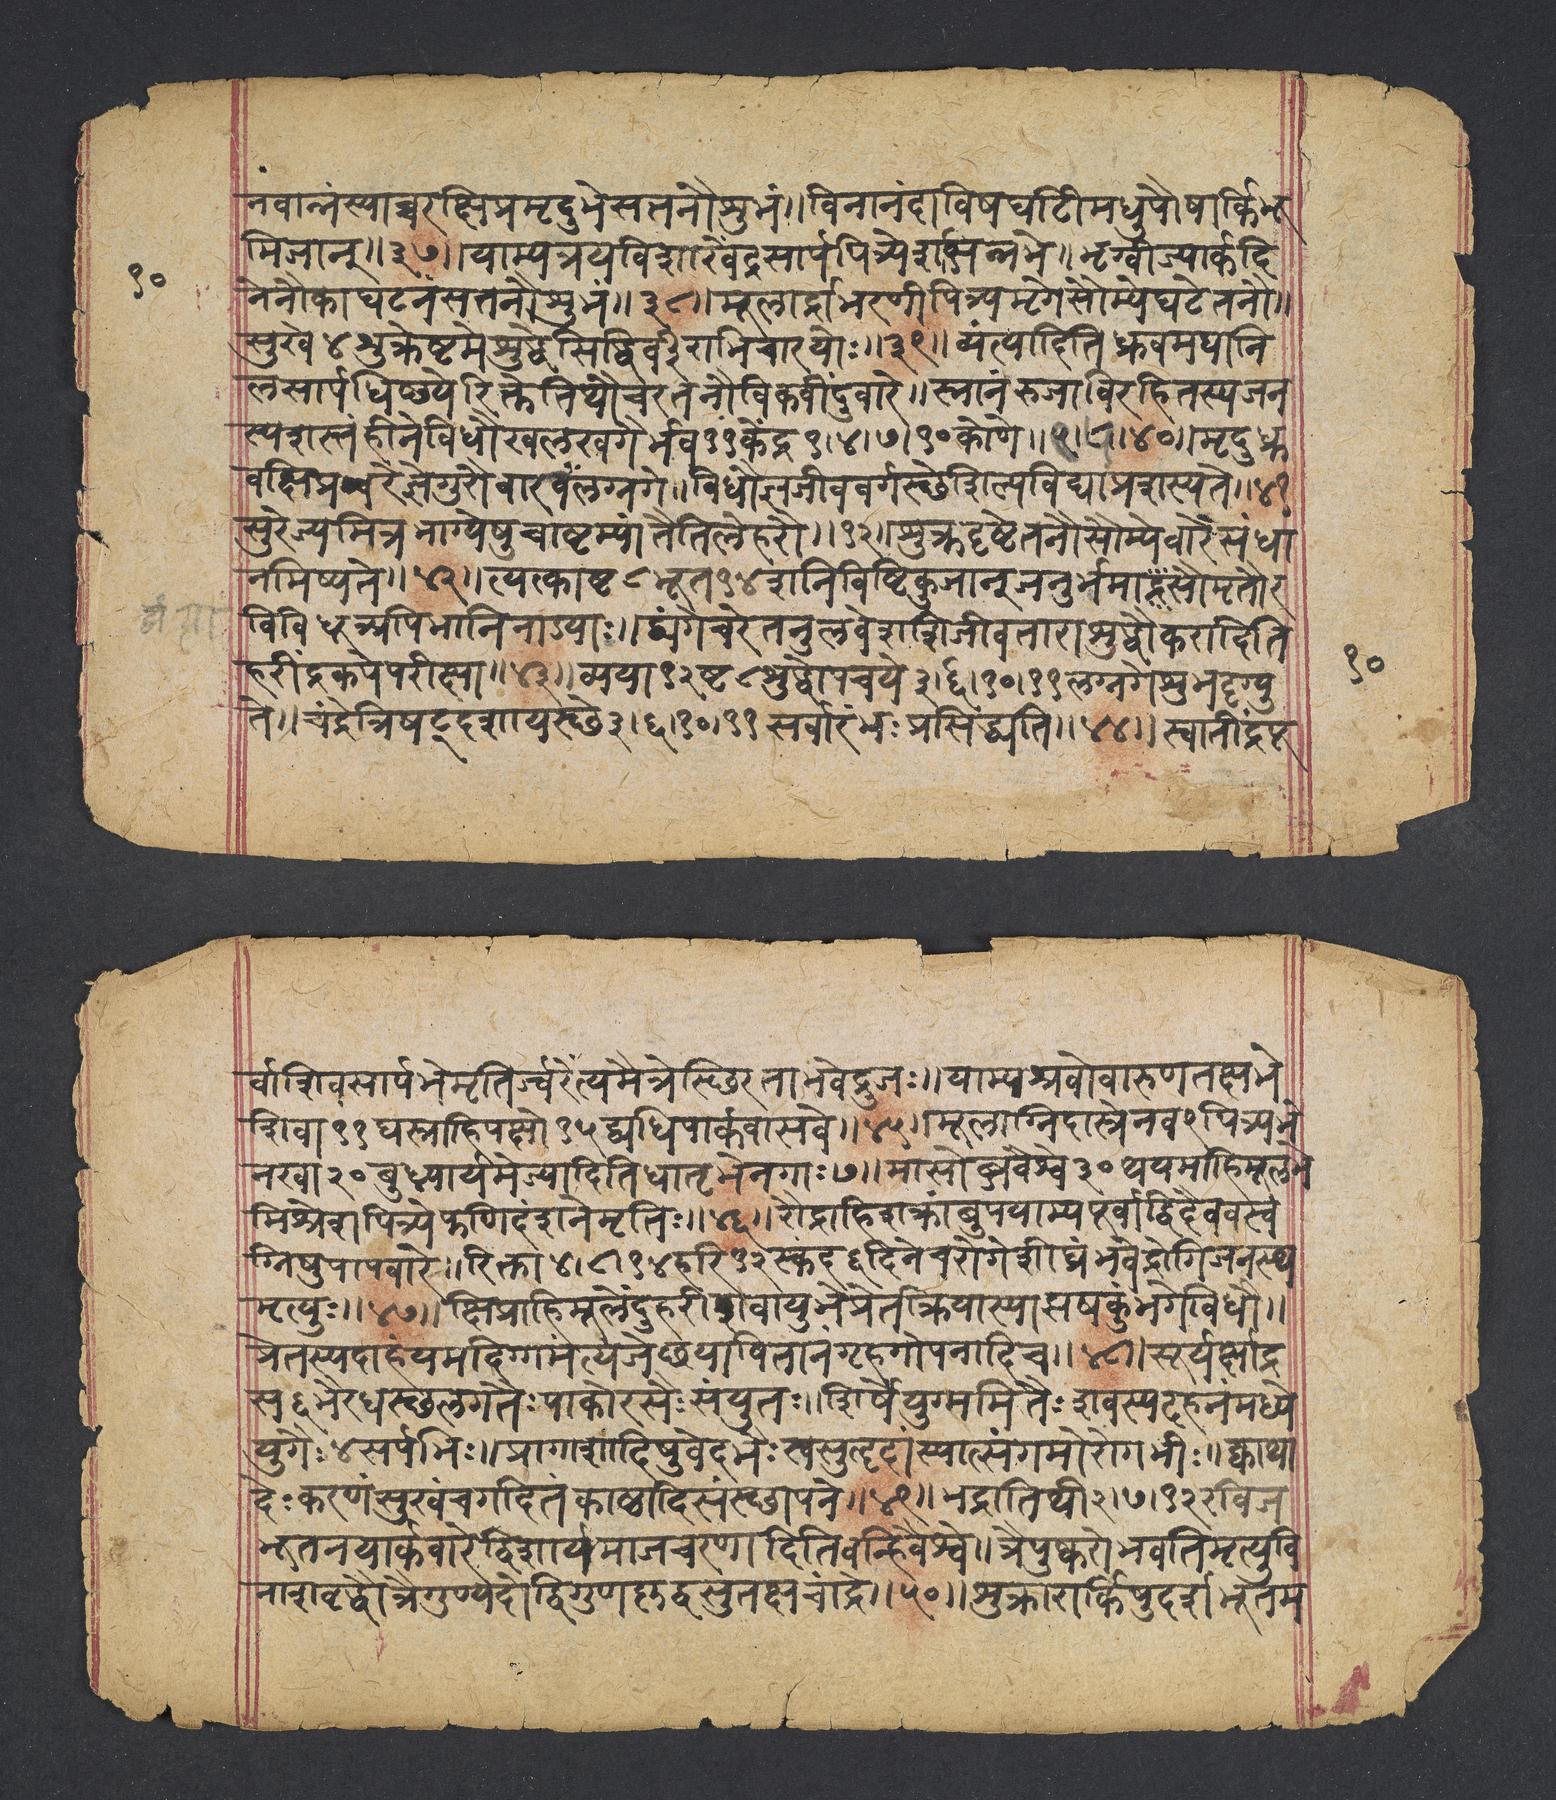 नवान्नंस्याच्चरक्षिप्रमृदुभेसत्तनौशुभं॥विनानंदाविषघटीमधुपौषार्किभू
मिजान्॥३७॥याम्यत्रयविशाखेंद्रसार्पपित्र्येशभिन्नभे॥भृग्वीज्यार्कदि
१०
नेनौकाघटनंसत्तनौशुभं॥३८॥मूलार्द्राभरणीपित्र्यमृगेसौम्येघटेतनौ॥
सुखे४शुक्रेष्टमेशुद्धेसिद्धिर्वीराभिचारयोः॥३९॥व्यंत्यादितिध्रुवमघानि
लसार्पधिष्ण्येरिक्तेतिथौचरतनौविकवींदुवारे॥स्नानंरुजाविरहितस्यजन
स्यशस्तंहीनेविधौखलखगैर्भव११केंद्र१।४।७।१०कोणे॥५।९।४०॥मृदुध्रु
वक्षिप्रचरेज्ञेगुरौवाखलग्नगे॥विधौज्ञजीववर्गस्छेशिल्पविद्याप्रशस्यते॥४१
सुरेज्यमित्रभाग्येषुचाष्टम्यांतैतिलेहरौ॥१२॥शुक्रदृष्टेतनौसौम्येवारेसंधा
नमिष्यते॥४२॥त्यक्त्वाष्ट८भूत१४शनिविष्टिकुजान्जनुर्भमासौमृतौर
विविधूअपिभानिनाऽयाः॥द्व्यंगेचरेतनुलवेशशिजीवताराशुद्धौकरादिति
हरींद्रकपेपरीक्षा॥४३॥व्यया१२ष्ट८शुद्धोपचये३।६।१०।११लग्नगेशुभदृग्यु
१०
ते॥चंद्रेत्रिषट्दशायस्छे३।६।१०।११सर्वारंभःप्रसिद्ध्यति॥४४॥स्वातींद्रपू
र्वाशिवसार्पभेमृतिर्ज्वरेंत्यमैत्रेस्छिरताभवेद्रुजः॥याम्यश्रवोवारुणतक्षभे
शिवा११घस्त्राहिपक्षो१५द्व्यधिपार्कवासवे॥४५॥मूलाग्निदास्रेनव९पित्र्यभे
नखा२०बुध्न्यार्यमेज्यादितिधातृभेनगाः७॥मासोब्जवैश्व३०थयमाहिमूलभे
मिश्रेशपित्र्येफणिदंशनेमृतिः॥४६॥रौद्राहिशाक्रांबुपयाम्यपूर्वाद्विदैववस्व
ग्निषुपापवारे॥रिक्ता४।९।१४हरि१२स्कंद६दिनेचरोगेशीघ्रंभवेद्रोगिजनस्य
मृत्युः॥४७॥क्षिप्राहिमूलेंदुहरीशवायुभेप्रेतक्रियास्याझषकुंभगेविधौ॥
प्रेतस्यदाहंयमदिग्गमंत्यजेछय्यावितानंगृहगोपनादिच॥४८॥सूर्यर्क्षाद्र
स६भैरधस्छलगतैःपाकोरसैःसंयुतः॥शीर्षेयुग्ममितैःशवस्यदहनंमध्ये
युगैः४सर्पभिः॥प्रागाशादिषुवेदभैःस्वसुहृदांस्यात्संगमोरोगभीः॥क्वाथा
देःकरणंसुखंचगदितंकाष्ठादिसंस्छापने॥४९॥भद्रातिथी२।७।१२रविज
भूतनयार्कवारेद्विशार्यमाजचरणादितिवन्हिवैश्वे॥त्रैपुष्करोभवतिमृत्युवि
नाशवृद्धौत्रैगुण्यदोद्विगुणकृद्वसुतक्षचांद्रे॥५०॥शुक्रारार्किषुदर्शभूतम